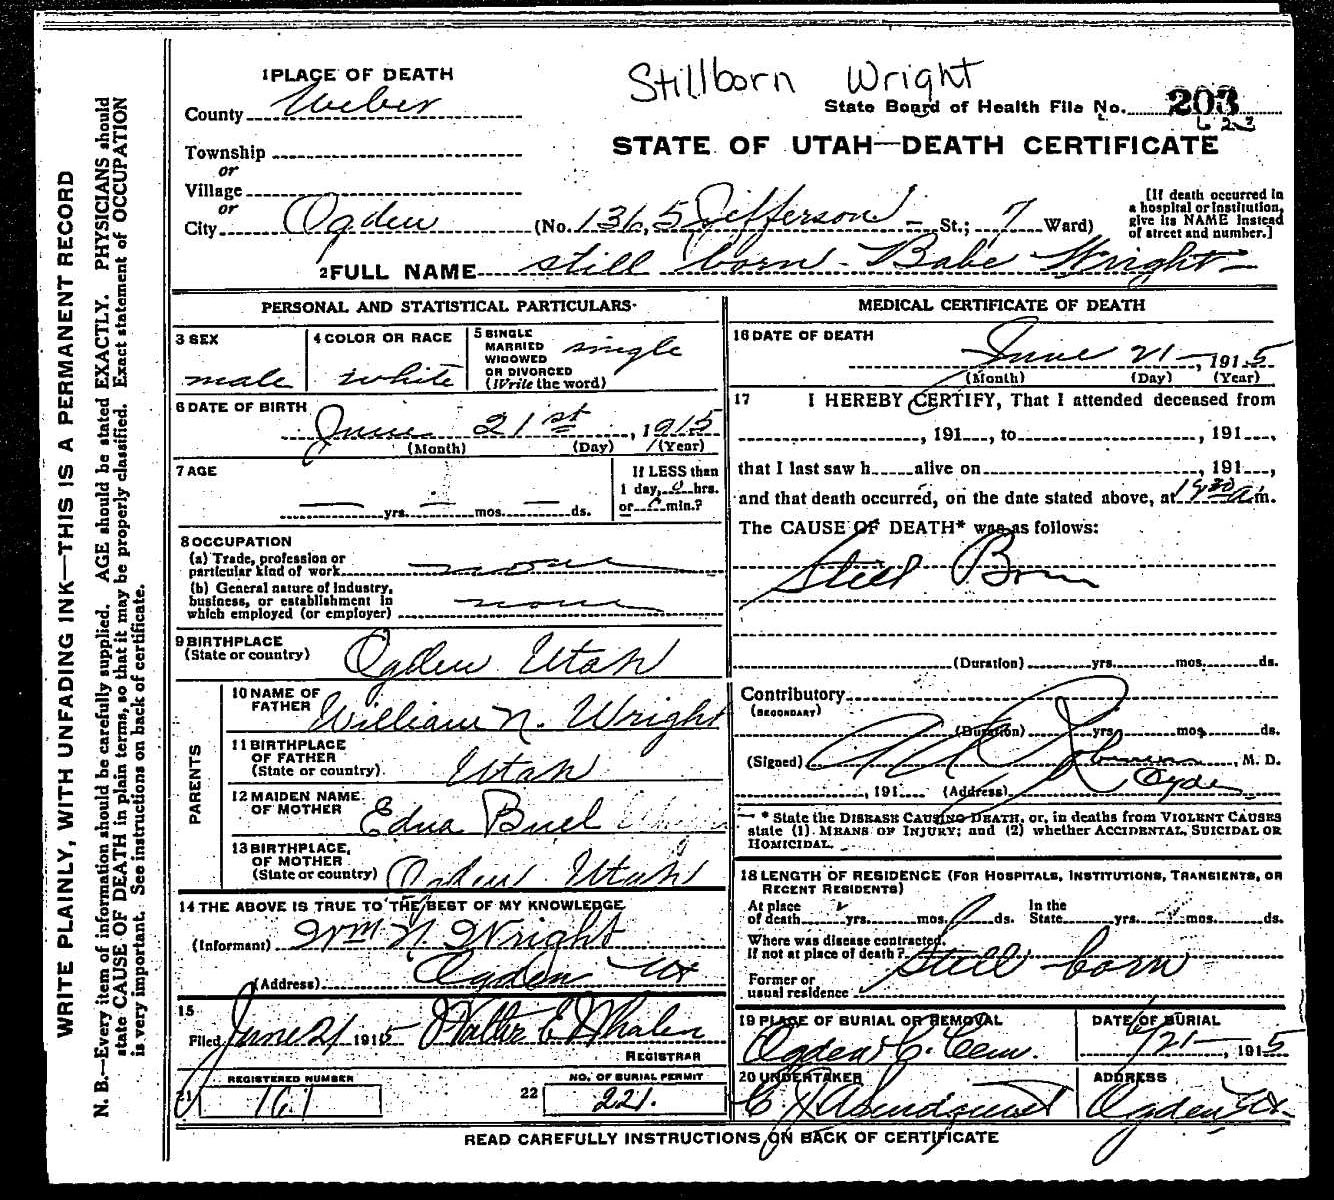 Stillborn Wright
1 PLACE OF DEATH
County Weber
State Board of Health File No. 203
623
STATE OF UTAH—DEATH CERTIFICATE
Township
or
Village
or
City Ogden (No. 1365 Jefferson St.; 7 Ward)
[If death occurred in
a hospital or institution,
give its NAME instead
of street and number.]
2 FULL NAME still born - Babe Wright
PERSONAL AND STATISTICAL PARTICULARS
3 SEX
male
4 COLOR OR RACE
white
5 SINGLE
MARRIED
WIDOWED
OR DIVORCED
(Write the word)
single
6 DATE OF BIRTH
June 21st, 1915
(Month) (Day) (Year)
7 AGE
— yrs. — mos. — ds.
If LESS than
1 day, 0 hrs.
or 0 min.?
8 OCCUPATION
(a) Trade, profession or
particular kind of work none
(b) General nature of industry,
business, or establishment in
which employed (or employer) none
9 BIRTHPLACE
(State or country) Ogden Utah
PARENTS
10 NAME OF
FATHER William N. Wright
11 BIRTHPLACE
OF FATHER
(State or country) Utah
12 MAIDEN NAME
OF MOTHER Edna Buel
13 BIRTHPLACE,
OF MOTHER
(State or country) Ogden Utah
14 THE ABOVE IS TRUE TO THE BEST OF MY KNOWLEDGE
(Informant) Wm N. Wright
(Address) Ogden Ut
15
Filed June 21 1915 Walter E Whalen
REGISTRAR
21 REGISTERED NUMBER
161
22 NO. OF BURIAL PERMIT
221.
MEDICAL CERTIFICATE OF DEATH
16 DATE OF DEATH
June 21 —, 1915
(Month) (Day) (Year)
17 I HEREBY CERTIFY, That I attended deceased from
, 191 , to , 191 ,
that I last saw h alive on , 191 ,
and that death occurred, on the date stated above, at a m.
The CAUSE OF DEATH* was as follows:
Still Born
(Duration) yrs. mos. ds.
Contributory
(SECONDARY)
(Duration) yrs. mos. ds.
(Signed) , M. D.
, 191 (Address) Ogden
* State the DISEASE CAUSING DEATH, or, in deaths from VIOLENT CAUSES
state (1). MEANS OF INJURY; and (2) whether ACCIDENTAL, SUICIDAL OR
HOMICIDAL.
18 LENGTH OF RESIDENCE (FOR HOSPITALS, INSTITUTIONS, TRANSIENTS, OR
RECENT RESIDENTS)
At place
of death yrs. mos. ds.
In the
State yrs. mos. ds.
Where was disease contracted,
If not at place of death?
Still born
Former or
usual residence
19 PLACE OF BURIAL OR REMOVAL
Ogden C. Cem.
DATE OF BURIAL
6/21 —, 1915
20 UNDERTAKER
ADDRESS
Ogden Ut.
READ CAREFULLY INSTRUCTIONS ON BACK OF CERTIFICATE
WRITE PLAINLY, WITH UNFADING INK—THIS IS A PERMANENT RECORD
N. B.—Every item of information should be carefully supplied. AGE should be stated EXACTLY. PHYSICIANS should
state CAUSE OF DEATH in plain terms, so that it may be properly classified. Exact statement of OCCUPATION
is very important. See instructions on back of certificate.